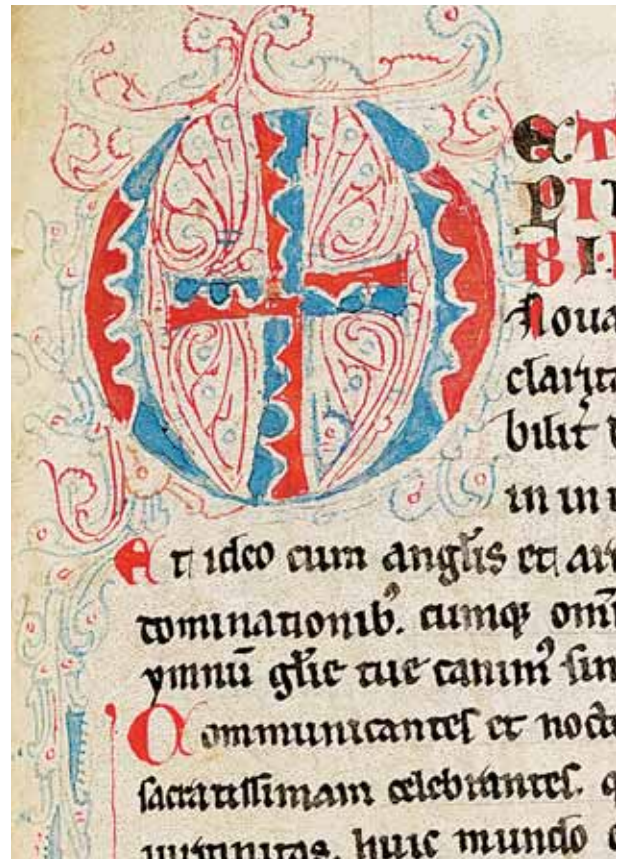 ET
PI
BI
Noua
clarita
bilit̉ d
in in
Et ideo cum angl̓is et ar
dominationibꝫ. cumqꝫ om̄
ymnū gl̓ie tue canim᷒ sin
Communicantes et noct
sacratissimam celebrantes. q
huic mundo